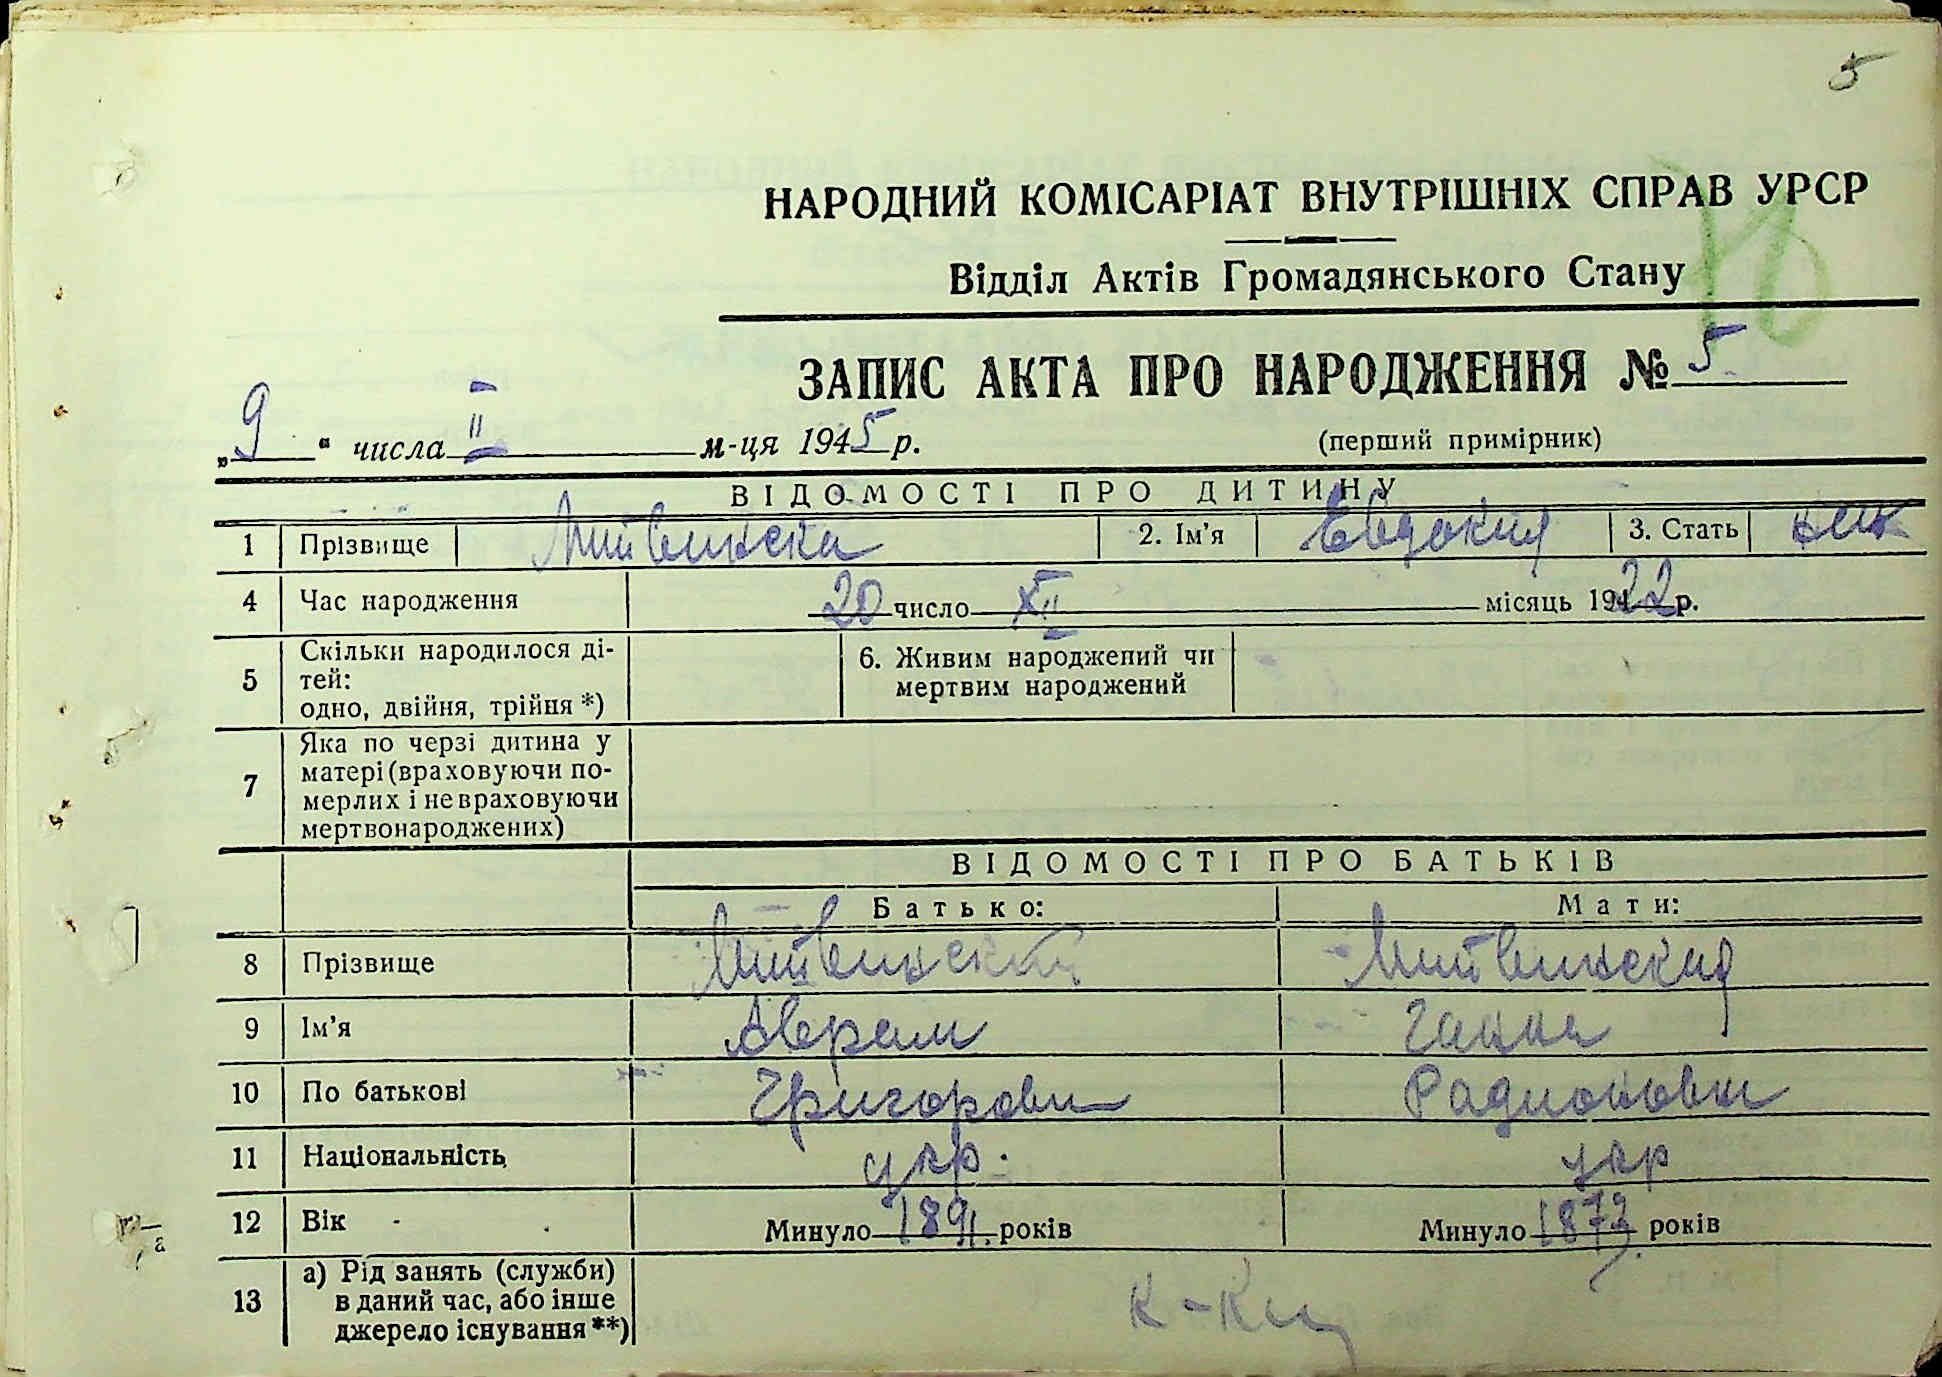 5
НАРОДНИЙ КОМІСАРІАТ ВНУТРІШНІХ СПРАВ УРСР
Відділ Актів Громадянського Стану
ЗАПИС АКТА ПРО НАРОДЖЕННЯ № 5
„ 9 “ числа II м-ця 1945 р. (перший примірник)
ВІДОМОСТІ ПРО ДИТИНУ
1 Прізвище 2. Ім'я Евдокия 3. Стать жен
4 Час народження 20 число XII місяць 1922 р.
5 Скільки народилося ді-
тей:
одно, двійня, трійня *)
6. Живим народжений чи
мертвим народжений
7 Яка по черзі дитина у
матері (враховуючи по-
мерлих і не враховуючи
мертвонароджених)
ВІДОМОСТІ ПРО БАТЬКІВ
Батько: Мати:
8 Прізвище
9 Ім'я Аврам Ганна
10 По батькові Григорович Радионовна
11 Національність укр. укр
12 Вік Минуло 1891. років Минуло 1873 років
13 а) Рід занять (служби)
в даний час, або інше
джерело існування **)